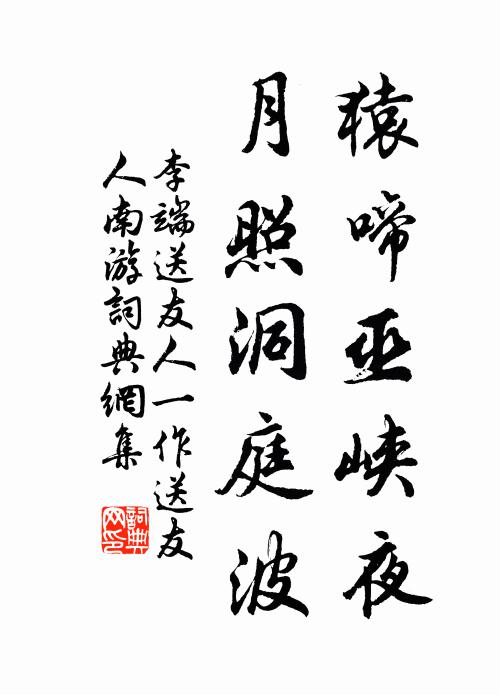 猿啼巫峽夜
月照洞庭波
李端送友人一作送友
人南游詞典網集
詞典
网印